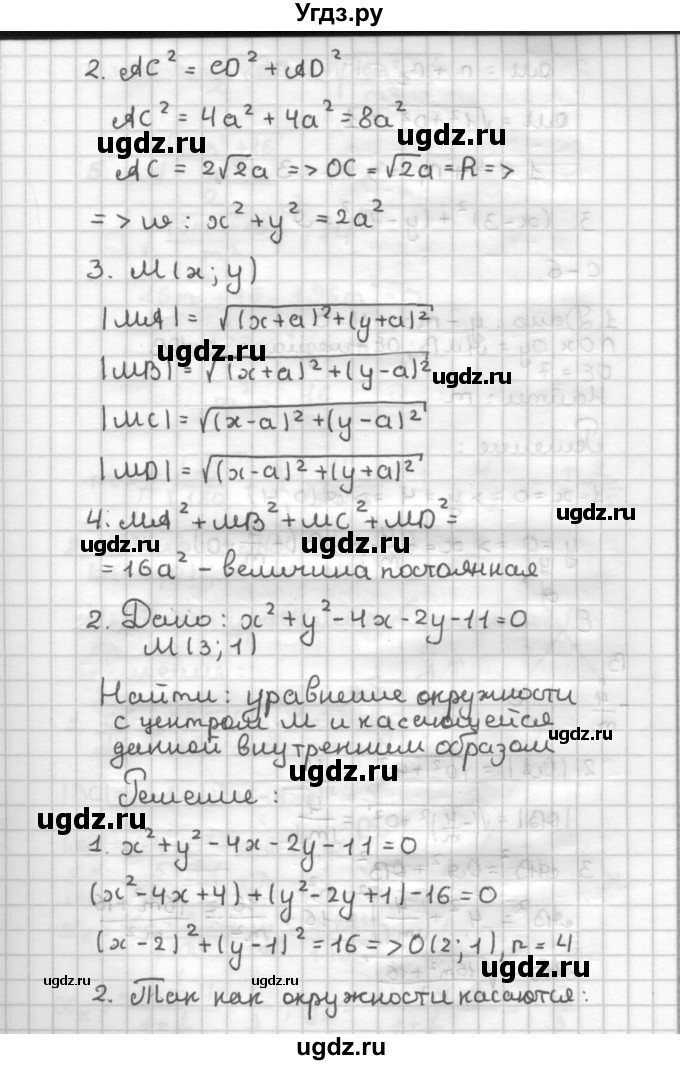 Угдз.ру
2. AC² = CD² + AD²
AC² = 4a² + 4a² = 8a²
ugdz.ru ugdz.ru
AC = 2√2a => OC = √2a = R =>
=> w : x² + y² = 2a²
3. M(x; y)
|MA| = √(x+a)²+(y+a)²
ugdz.ru
|MB| = √(x+a)²+(y-a)²
ugdz.ru
|MC| = √(x-a)²+(y-a)²
|MD| = √(x-a)²+(y+a)²
ugdz.ru
4. MA² + MB² + MC² + MD² =
ugdz.ru ugdz.ru
= 16a² - величина постоянная
2. Дано: x² + y² - 4x - 2y - 11 = 0
M(3; 1)
Найти: уравнение окружности
с центром M и касающейся
ugdz.ru
данной внутренним образом
ugdz.ru
Решение:
ugdz.ru
1. x² + y² - 4x - 2y - 11 = 0
(x² - 4x + 4) + (y² - 2y + 1) - 16 = 0
(x - 2)² + (y - 1)² = 16 => O(2; 1), r = 4
ugdz.ru
ugdz.ru
2. Так как окружности касаются:
ugdz.ru
ugdz.ru